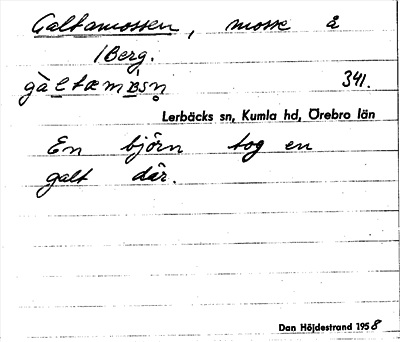 Galtamossen, mosse å
1Berg.
341.
Lerbäcks sn, Kumla hd, Örebro län
En björn tog en
galt där.
Dan Höjdestrand 1958